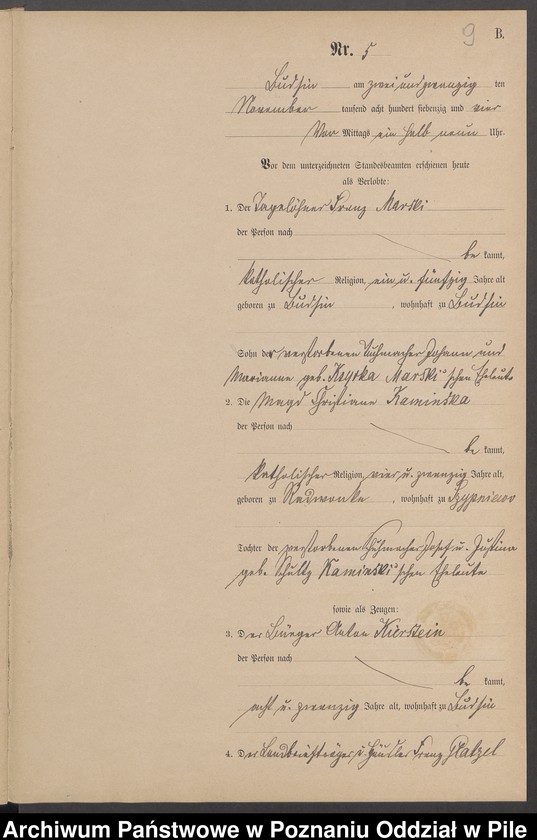 9 B.
Nr. 5
Budsin am zwei und zwanzig ten
November tausend acht hundert siebenzig und vier
Vor Mittags ein halb neun Uhr.
Vor dem unterzeichneten Standesbeamten erschienen heute
als Verlobte:
1. Der Tagelöhner Franz Marski
der Person nach
be kannt,
katholischer Religion, ein u. fünfzig Jahre alt
geboren zu Budsin, wohnhaft zu Budsin
Sohn der verstorbenen Tuchmacher Johann und
Marianne geb. Marski'schen Eheleute
2. Die Magd Christiane Kaminska
der Person nach
be kannt,
katholischer Religion, vier u. zwanzig Jahre alt,
geboren zu Radwonke, wohnhaft zu
Tochter der verstorbenen Josef u. Justina
geb. Schultz Kaminski'schen Eheleute
sowie als Zeugen:
3. Der Bürger Anton Kierstein
der Person nach
be kannt,
acht u. zwanzig Jahre alt, wohnhaft zu Budsin
4. Der Landbriefträger u. Häusler Franz
Archiwum Państwowe w Poznaniu Oddział w Pile